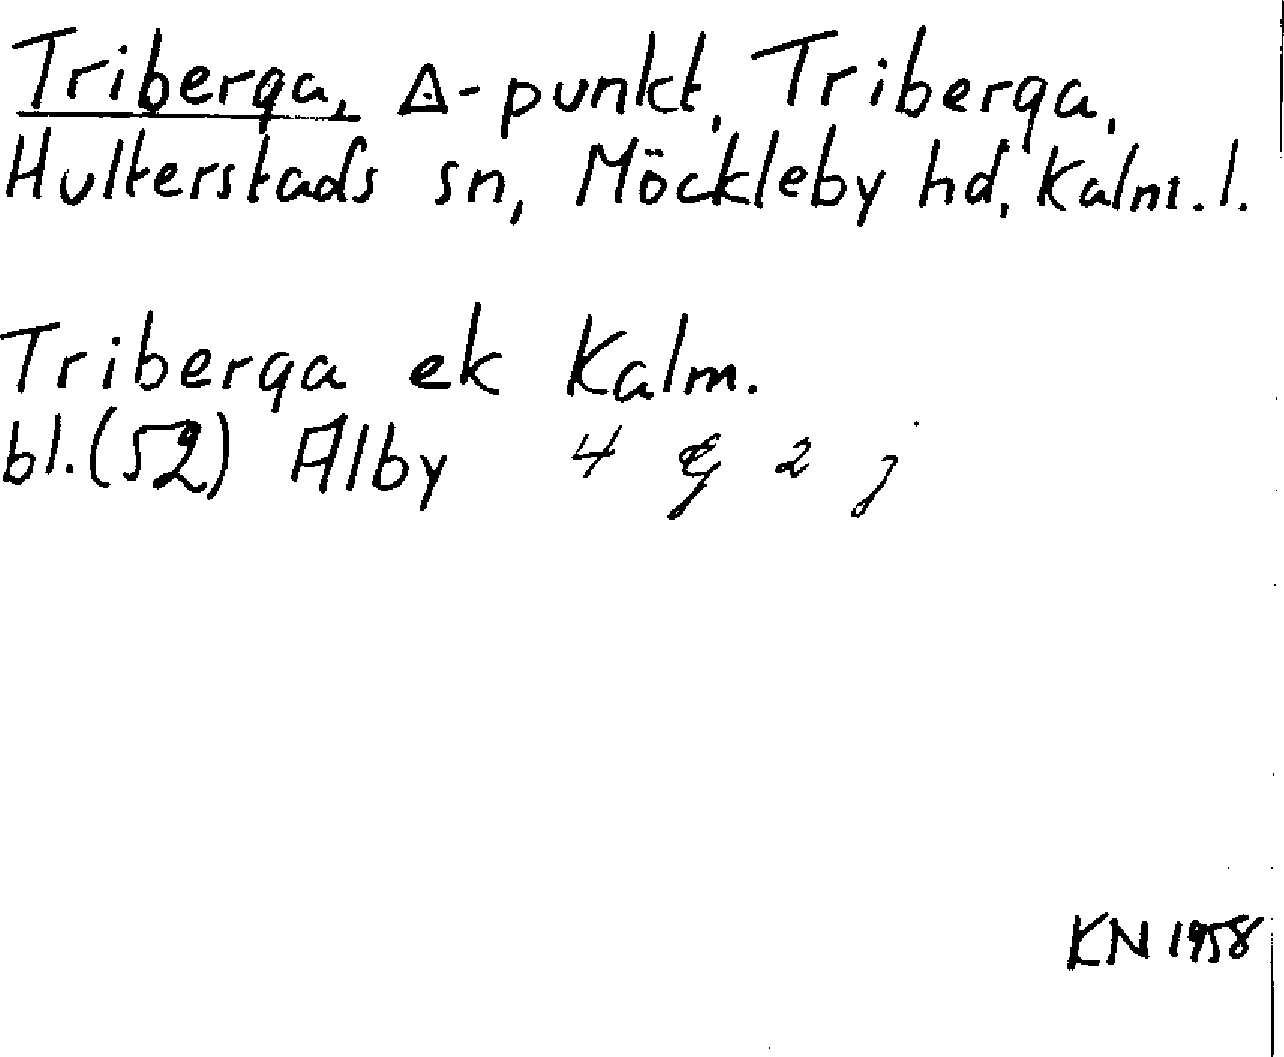 Triberga, Δ-punkt, Triberga,
Hulterstads sn, Möckleby hd, Kalm. l.
Triberga ek Kalm.
bl. (52) Alby 4 g 2 j
KN 1958